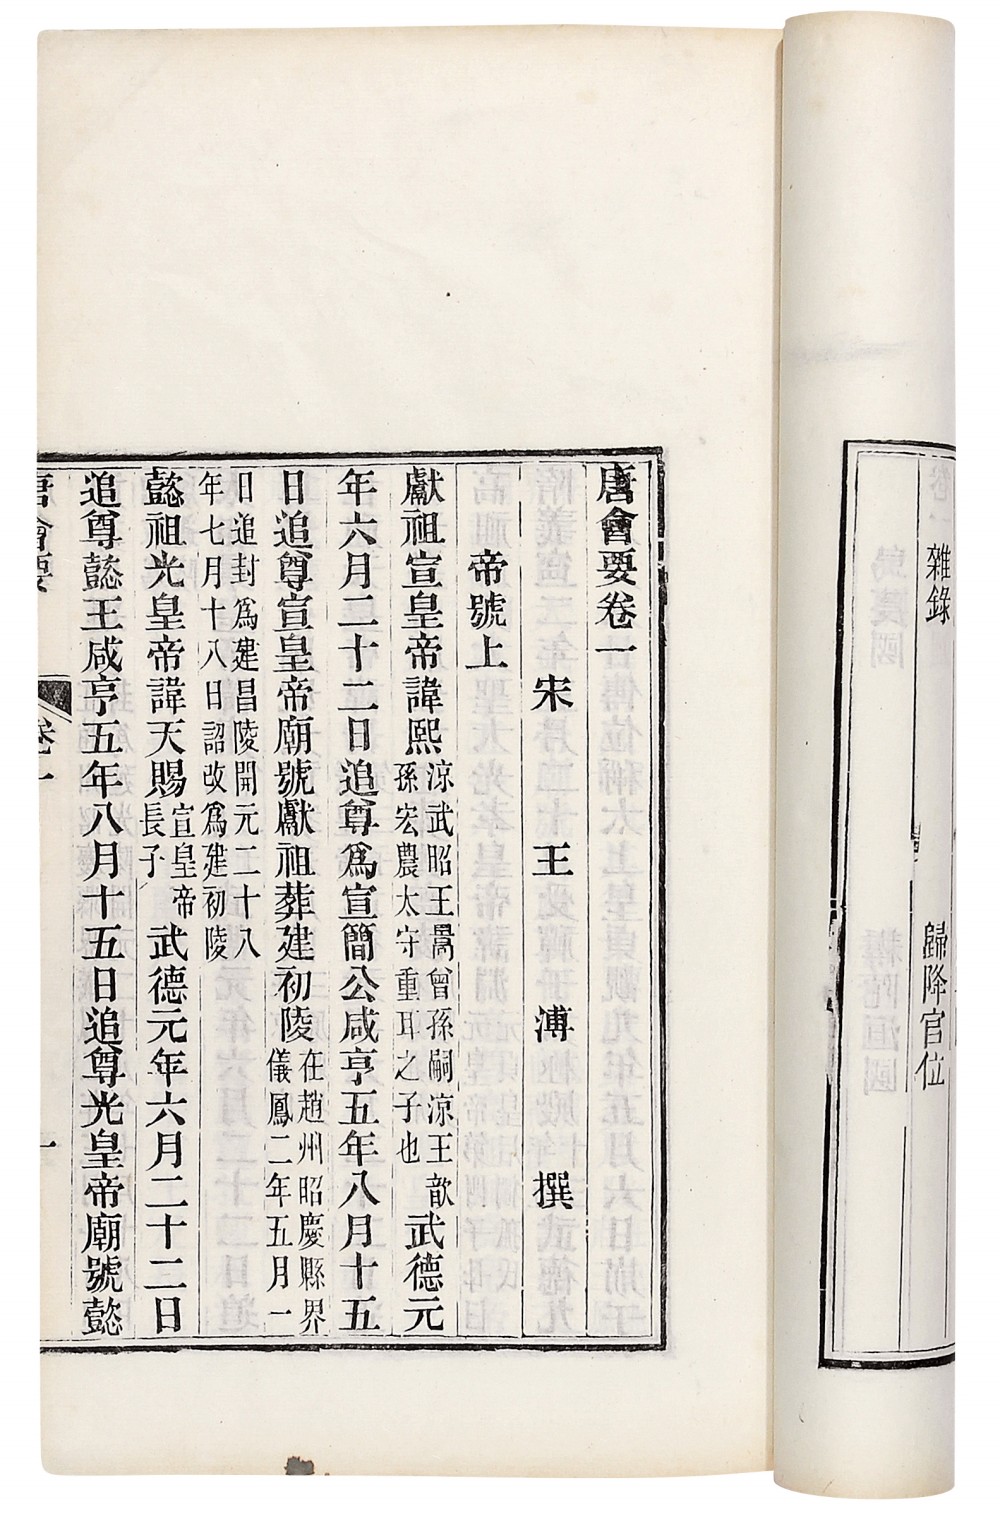 雜錄
歸降官位
唐會要卷一
宋 王 溥 撰
帝號上
獻祖宣皇帝諱熙涼武昭王暠曾孫嗣涼王歆孫宏農太守重耳之子也武德元
年六月二十二日追尊爲宣簡公咸亨五年八月十五
日追尊宣皇帝廟號獻祖葬建初陵在趙州昭慶縣界儀鳳二年五月一
日追封爲建昌陵開元二十八年七月十八日詔改爲建初陵
懿祖光皇帝諱天賜宣皇帝長子武德元年六月二十二日
追尊懿王咸亨五年八月十五日追尊光皇帝廟號懿
唐會要 卷一 一